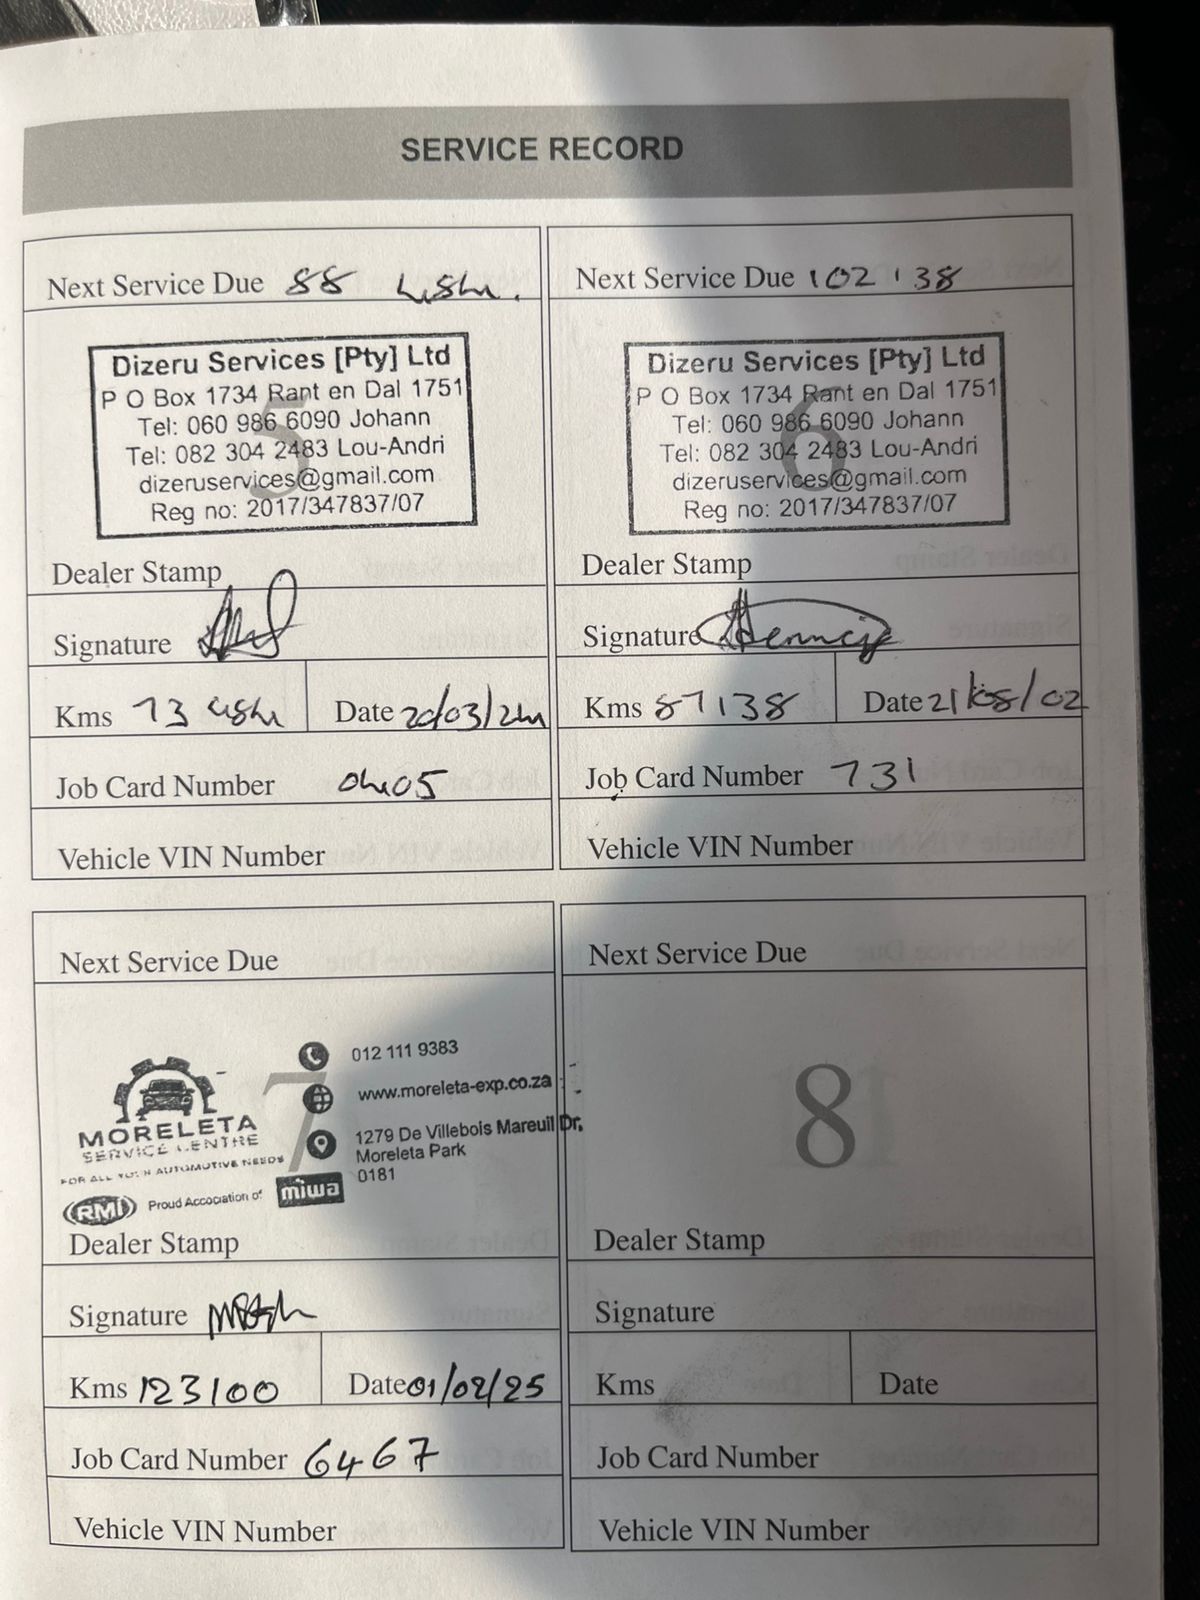 SERVICE RECORD
Next Service Due 88
Dizeru Services [Pty] Ltd
P O Box 1734 Rant en Dal 1751
Tel: 060 986 6090 Johann
Tel: 082 304 2483 Lou-Andri
dizeruservices@gmail.com
Reg no: 2017/347837/07
5
Dealer Stamp
Signature
Kms 73
Date 20/03/
Job Card Number
Vehicle VIN Number
Next Service Due 102 138
Dizeru Services [Pty] Ltd
P O Box 1734 Rant en Dal 1751
Tel: 060 986 6090 Johann
Tel: 082 304 2483 Lou-Andri
dizeruservices@gmail.com
Reg no: 2017/347837/07
6
Dealer Stamp
Signature
Kms 87138
Date 21/08/02
Job Card Number 731
Vehicle VIN Number
Next Service Due
7
MORELETA
SERVICE CENTRE
FOR ALL YOUR AUTOMOTIVE NEEDS
RMI Proud Accociation of miwa
012 111 9383
www.moreleta-exp.co.za
1279 De Villebois Mareuil Dr,
Moreleta Park
0181
Dealer Stamp
Signature
Kms 123100
Date 01/02/25
Job Card Number 6467
Vehicle VIN Number
Next Service Due
8
Dealer Stamp
Signature
Kms
Date
Job Card Number
Vehicle VIN Number